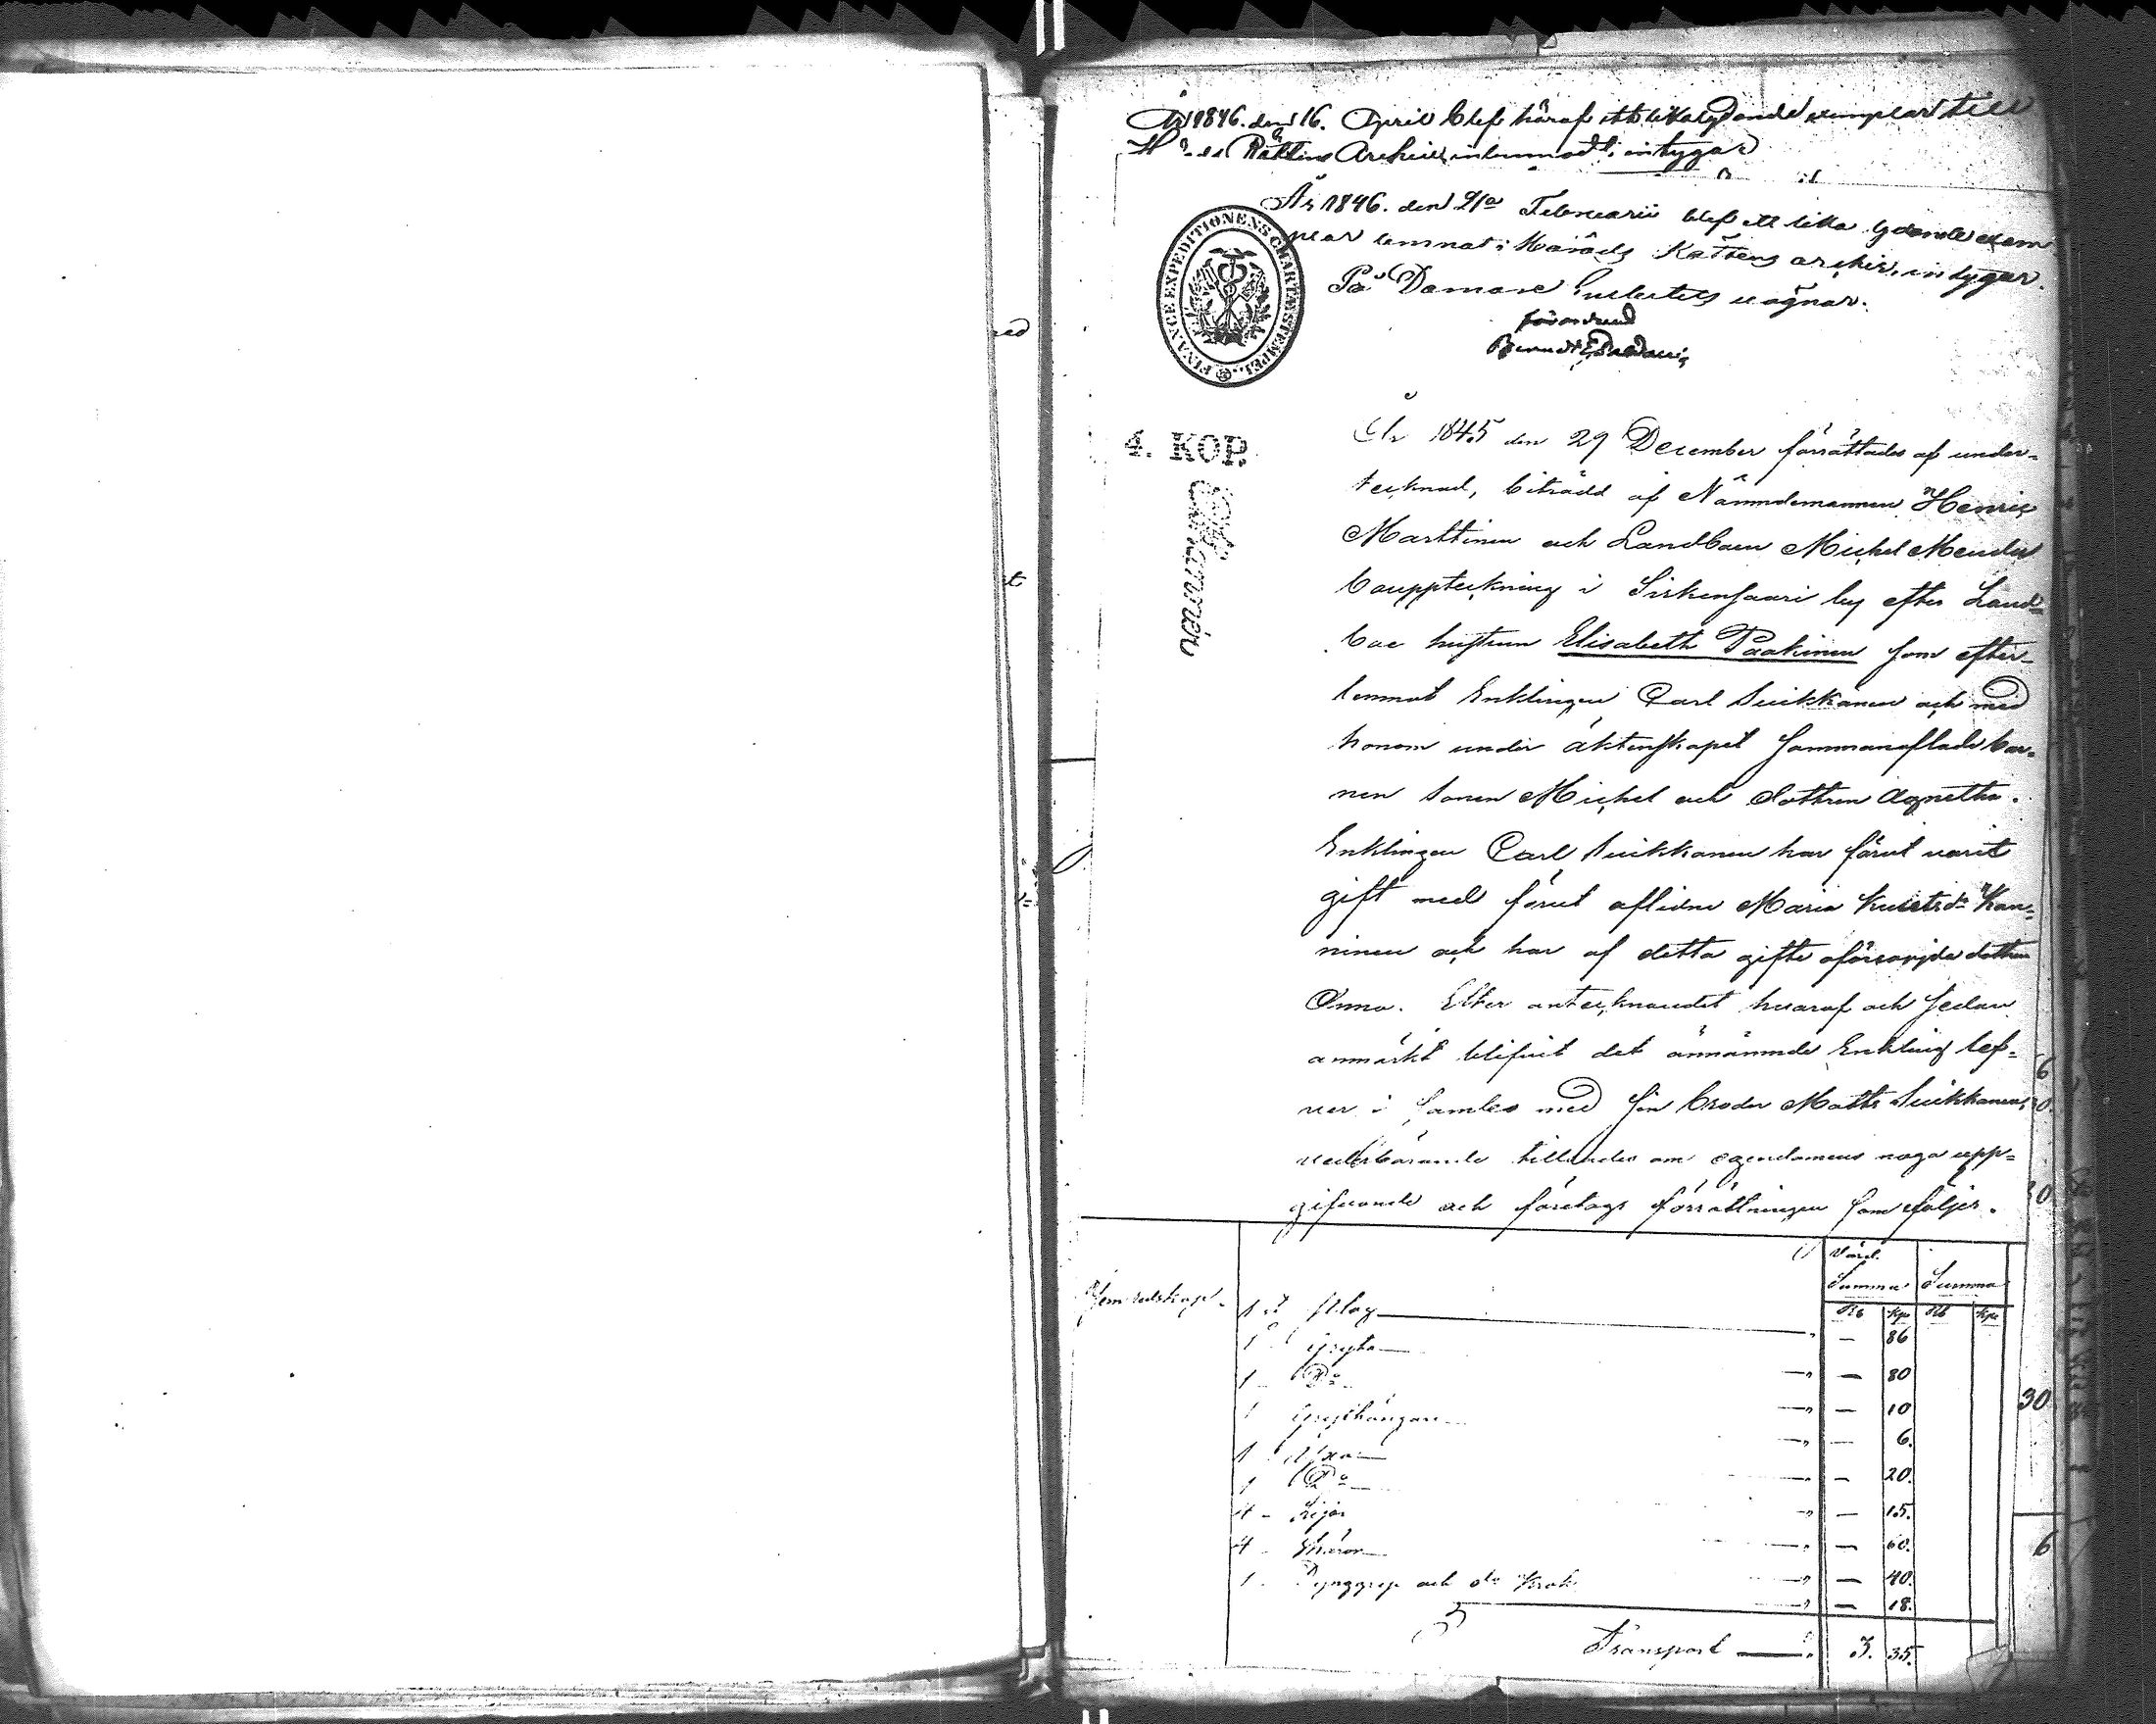 År 1846. den 16. April blef häraf ett lika lydande exemplar till
Hds Rättens Archiv inlemnadt; intygar
År 1846. den 21a Februarii blef ett lika lydande exem
plar lemnat i Härads Rättens archiv, intygar.
På Domare Embetets vägnar.
FINANCE EXPEDITIONENS CHARTÆ STEMPEL.
4. KOP.
År 1845 den 29 December förrättades af under-
tecknad, biträdd af Nämndemannen Henric
Marttinen och Landboen Michel
bouppteckning i Sirkensaari by efter Land-
boe hustrun Elisabeth Paakinen som efter-
lemnat Enklingen Carl Suikkanen och med
honom under äktenskapet sammanaflade bar-
nen sonen Michel och dottren Agnetha.
Enklingen Carl Suikkanen har förut varit
gift med förut aflidne Maria Kan-
ninen och har af detta gifte oförsörjda dottren
Anna. Efter antecknandet hvaraf och sedan
anmärkt blifvit det ännämnde Enkling lef-
ver i samlev med sin broder Matts Suikkanen,
vederbörande tillhades om egendomens noga upp-
gifvande och företogs förrättningen som följer.
Värd.
Summa Summa
Rb Kp Rb Kp
Jernredskap. 1 st Plog — 86
1 Gryta — 80
1 Do — 10
1 Grythängare — 6.
1 Yxa — 20.
1 Do — 15.
4 Lijor — 60.
4 Skäror — 40.
1 Dynggrep och do Krok — 18.
Transport 3. 35.